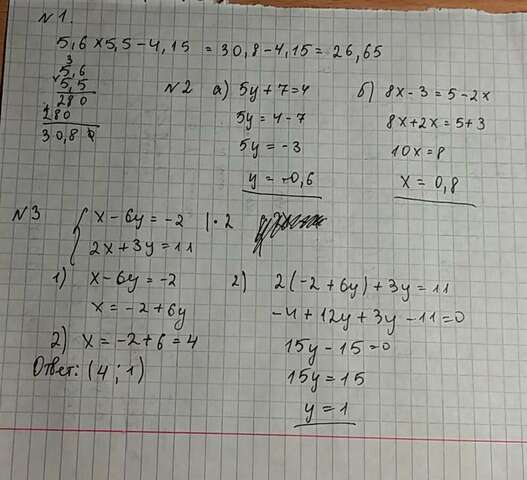 N1.
5,6 × 5,5 - 4,15 = 30,8 - 4,15 = 26,65
3
5,6
5,5
280
+280
30,80
N2 а) 5y + 7 = 4
5y = 4 - 7
5y = -3
y = -0,6
б) 8x - 3 = 5 - 2x
8x + 2x = 5 + 3
10x = 8
x = 0,8
N3
{ x - 6y = -2 | · 2
2x + 3y = 11
1) x - 6y = -2
x = -2 + 6y
2) 2(-2 + 6y) + 3y = 11
-4 + 12y + 3y - 11 = 0
15y - 15 = 0
15y = 15
y = 1
2) x = -2 + 6 = 4
Ответ: (4 ; 1)